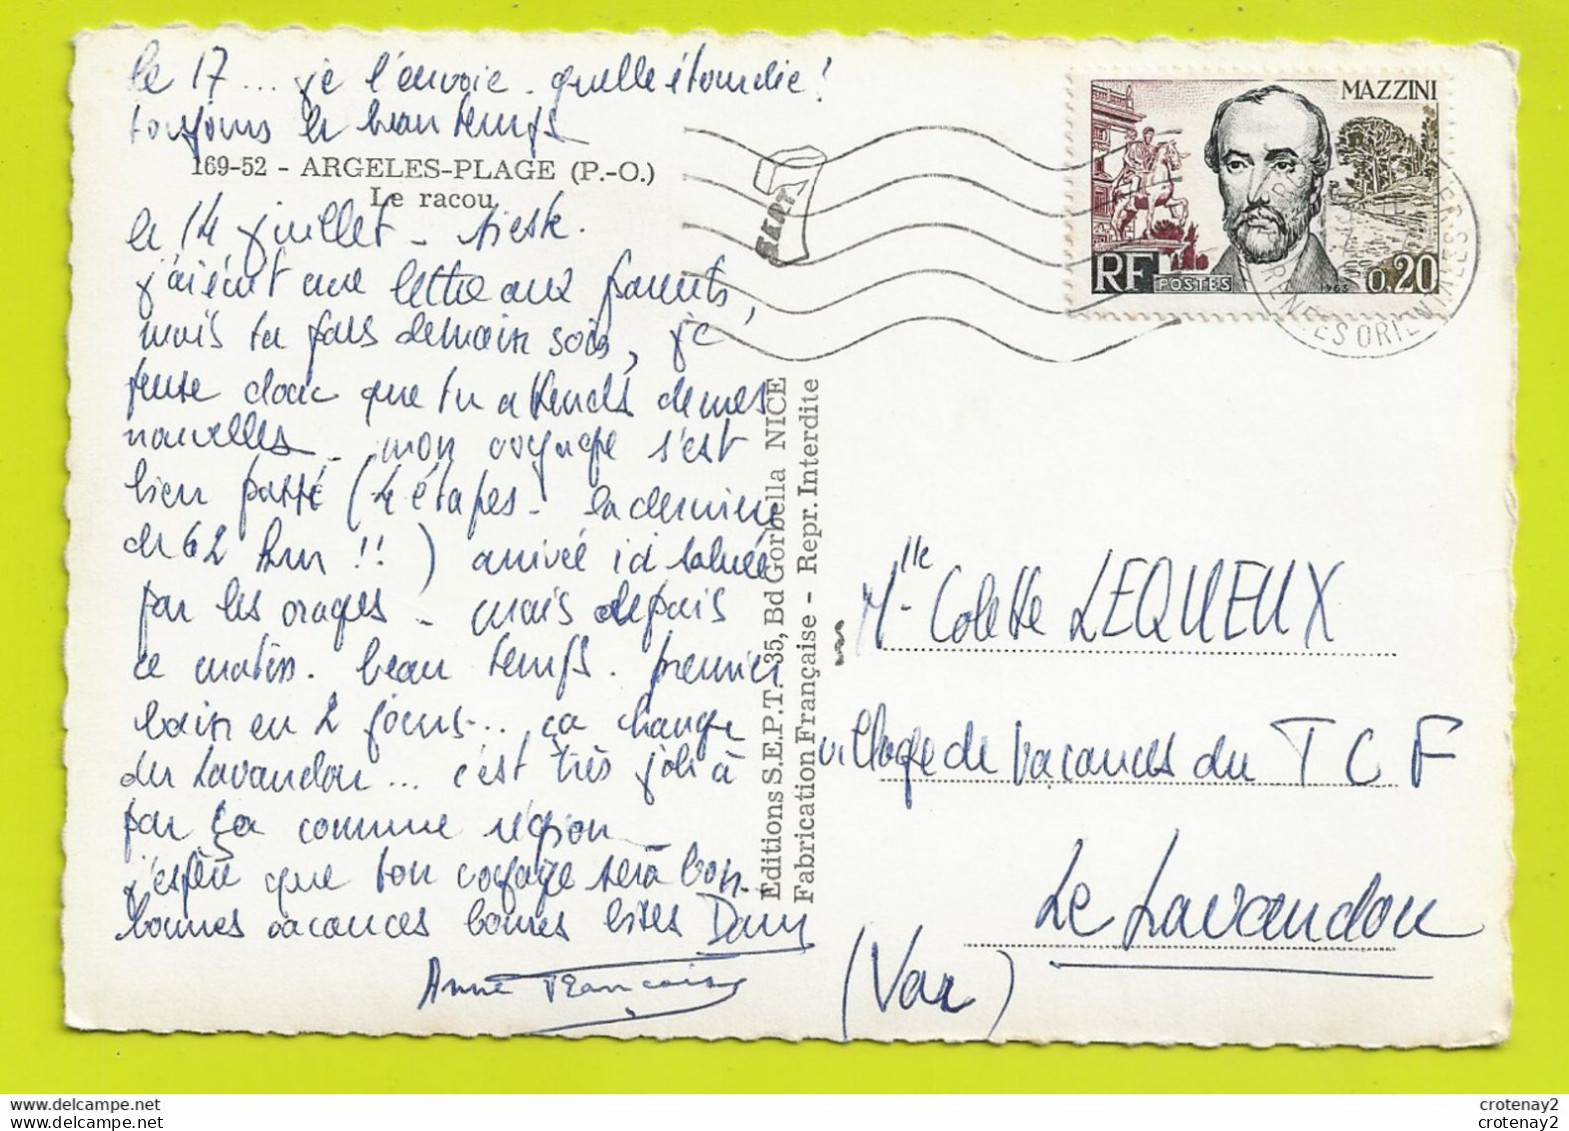 le 17 ... je l'envoie. quelle étourdie !
toujours le beau temps
169-52 - ARGELES-PLAGE (P.-O.)
Le racou
le 14 juillet - sieste.
j'ai écrit une lettre aux parents,
mais tu pars demain soir, je
pense donc que tu attends de mes
nouvelles - mon voyage s'est
bien passé (4 étapes - la dernière
de 62 km !!) arrivée ici saluée
par les orages - mais depuis
ce matin. beau temps. premier
bain en 2 jours... ça change
du Lavandou... c'est très joli à
par ça comme région -
j'espère que ton voyage sera bon -
bonnes vacances bonnes bises Dany
Anne Françoise
Editions S.E.P.T. - 35, Bd Gorbella NICE
Fabrication Française - Repr. Interdite
MAZZINI
RF POSTES 1963 0,20
PYRENEES ORIENTALES
Mlle Colette LEQUEUX
village de vacances du T C F
Le Lavandou
(Var)
crotenay2
crotenay2
crotenay2
crotenay2